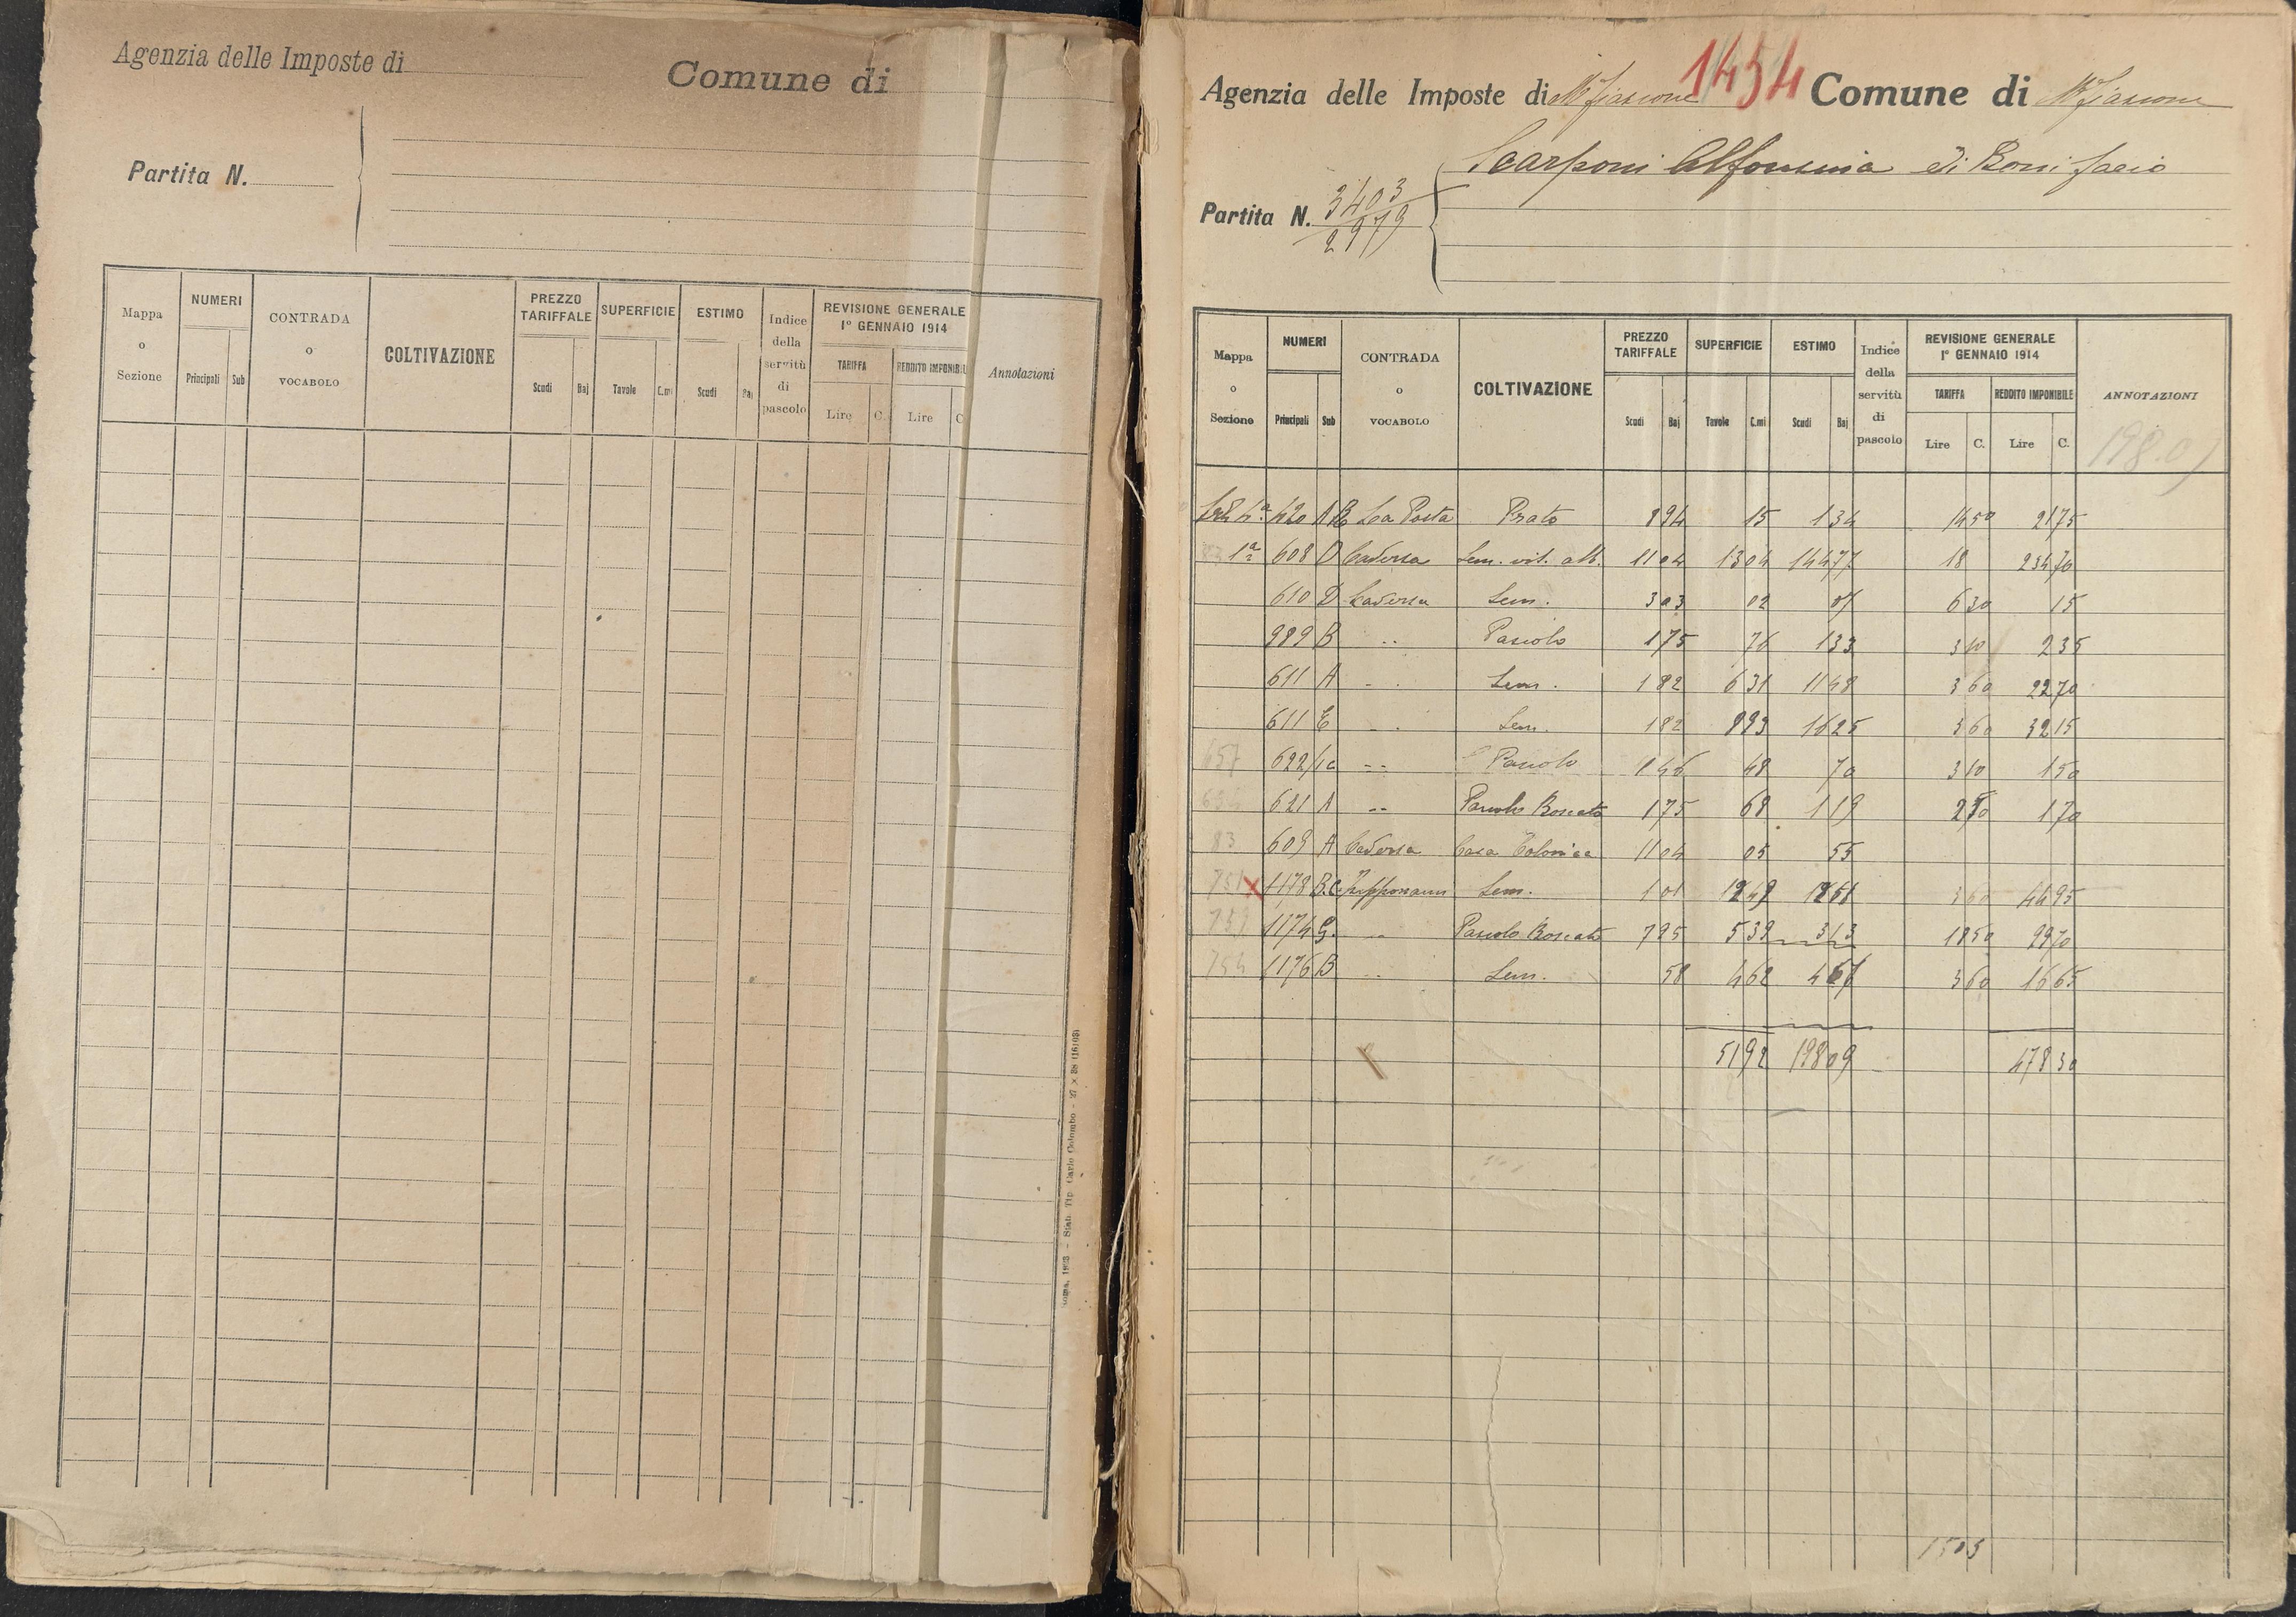 Agenzia delle Imposte di
Comune di
Partita N.
Mappa o Sezione
NUMERI
Principali Sub
CONTRADA o VOCABOLO
COLTIVAZIONE
PREZZO TARIFFALE
Scudi Baj
SUPERFICIE
Tavole C.mi
ESTIMO
Scudi Baj
Indice della servitù di pascolo
REVISIONE GENERALE
1º GENNAIO 1914
TARIFFA REDDITO IMPONIBILE
Lire C. Lire C
Annotazioni
Roma, 1923 - Stab. Tip. Carlo Colombo - 27 × 38
1454
Agenzia delle Imposte di Mfiascone Comune di Mfiascone
Scarponi Alfonsina di Bonifacio
Partita N. 3403
2979
Mappa o Sezione
NUMERI
Principali Sub
CONTRADA o VOCABOLO
COLTIVAZIONE
PREZZO TARIFFALE
Scudi Baj
SUPERFICIE
Tavole C.mi
ESTIMO
Scudi Baj
Indice della servitù di pascolo
REVISIONE GENERALE
1º GENNAIO 1914
TARIFFA REDDITO IMPONIBILE
Lire C. Lire C.
ANNOTAZIONI
198.09
420 La Posta Prato 894 15 134 1450 2175
1ª 608 D Cadersa Sem. vit. alb. 1104 1304 14477 18 23470
610 D Cadersa Sem. 303 02 07 630 15
989 B " Pascolo 175 76 133 310 235
611 A " Sem. 182 631 1148 360 2270
611 E " Sem. 182 893 1625 360 3215
657 622 " Pascolo 146 48 70 310 150
621 A " Pascolo Boscato 175 68 119 170
83 609 A Cadersa Casa Colonica 1104 05 55
751 x 1178 B.C. Sem. 101 360 4495
1174 G. " Pascolo Boscato 539 313 1850 9970
754 1176 B " Sem. 58 462 360 1665
5192 19809 47830
1503